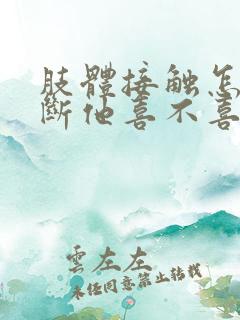 肢體接觸怎
斷他喜不喜
雲左左
未经同意禁止转载